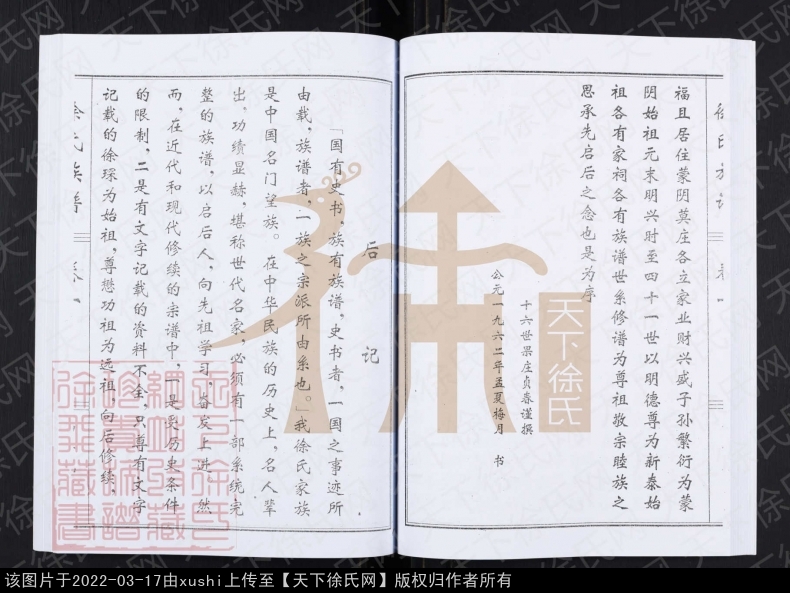 福且居住蒙阴莫庄各立家业财兴盛子孙繁衍为蒙
阴始祖元末明兴时至四十一世以明德尊为新泰始
祖各有家祠各有族谱世系修谱为尊祖敬宗睦族之
思承先启后之念也是为序
十六世果庄贞春谨撰
公元一九六二年孟夏梅月 书
后记
「国有史书，族有族谱，史书者，一国之事迹所
由载，族谱者，一族之宗派所由系也。」我徐氏家族
是中国名门望族。在中华民族的历史上，名人辈
出，功绩显赫，堪称世代名家，必须有一部系统完
整的族谱，以启后人，向先祖学习，奋发上进。然
而，在近代和现代修续的宗谱中，一是受历史条件
的限制，二是有文字记载的资料不全，只尊有文字
记载的徐琛为始祖，尊懋功祖为远祖，向后修续，
徐氏族谱 卷一
天下徐氏
天下徐氏网
该图片于2022-03-17由xushi上传至【天下徐氏网】版权归作者所有